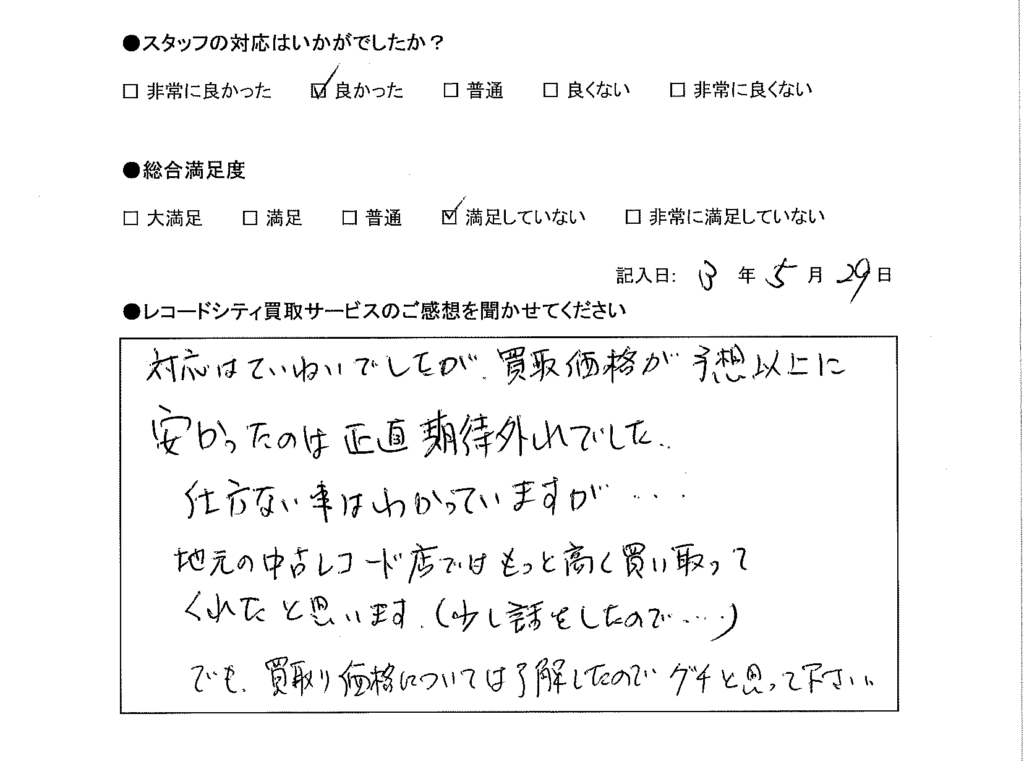 ●スタッフの対応はいかがでしたか？
□ 非常に良かった ☑ 良かった □ 普通 □ 良くない □ 非常に良くない
●総合満足度
□ 大満足 □ 満足 □ 普通 ☑ 満足していない □ 非常に満足していない
記入日: 13 年 5 月 29 日
●レコードシティ買取サービスのご感想を聞かせてください
対応はていねいでしたが、買取価格が予想以上に
安かったのは正直期待外れでした..
仕方ない事はわかっていますが・・・・
地元の中古レコード店ではもっと高く買い取って
くれたと思います.(少し話をしたので・・・・)
でも、買取り価格については了解したのでグチと思って下さい..